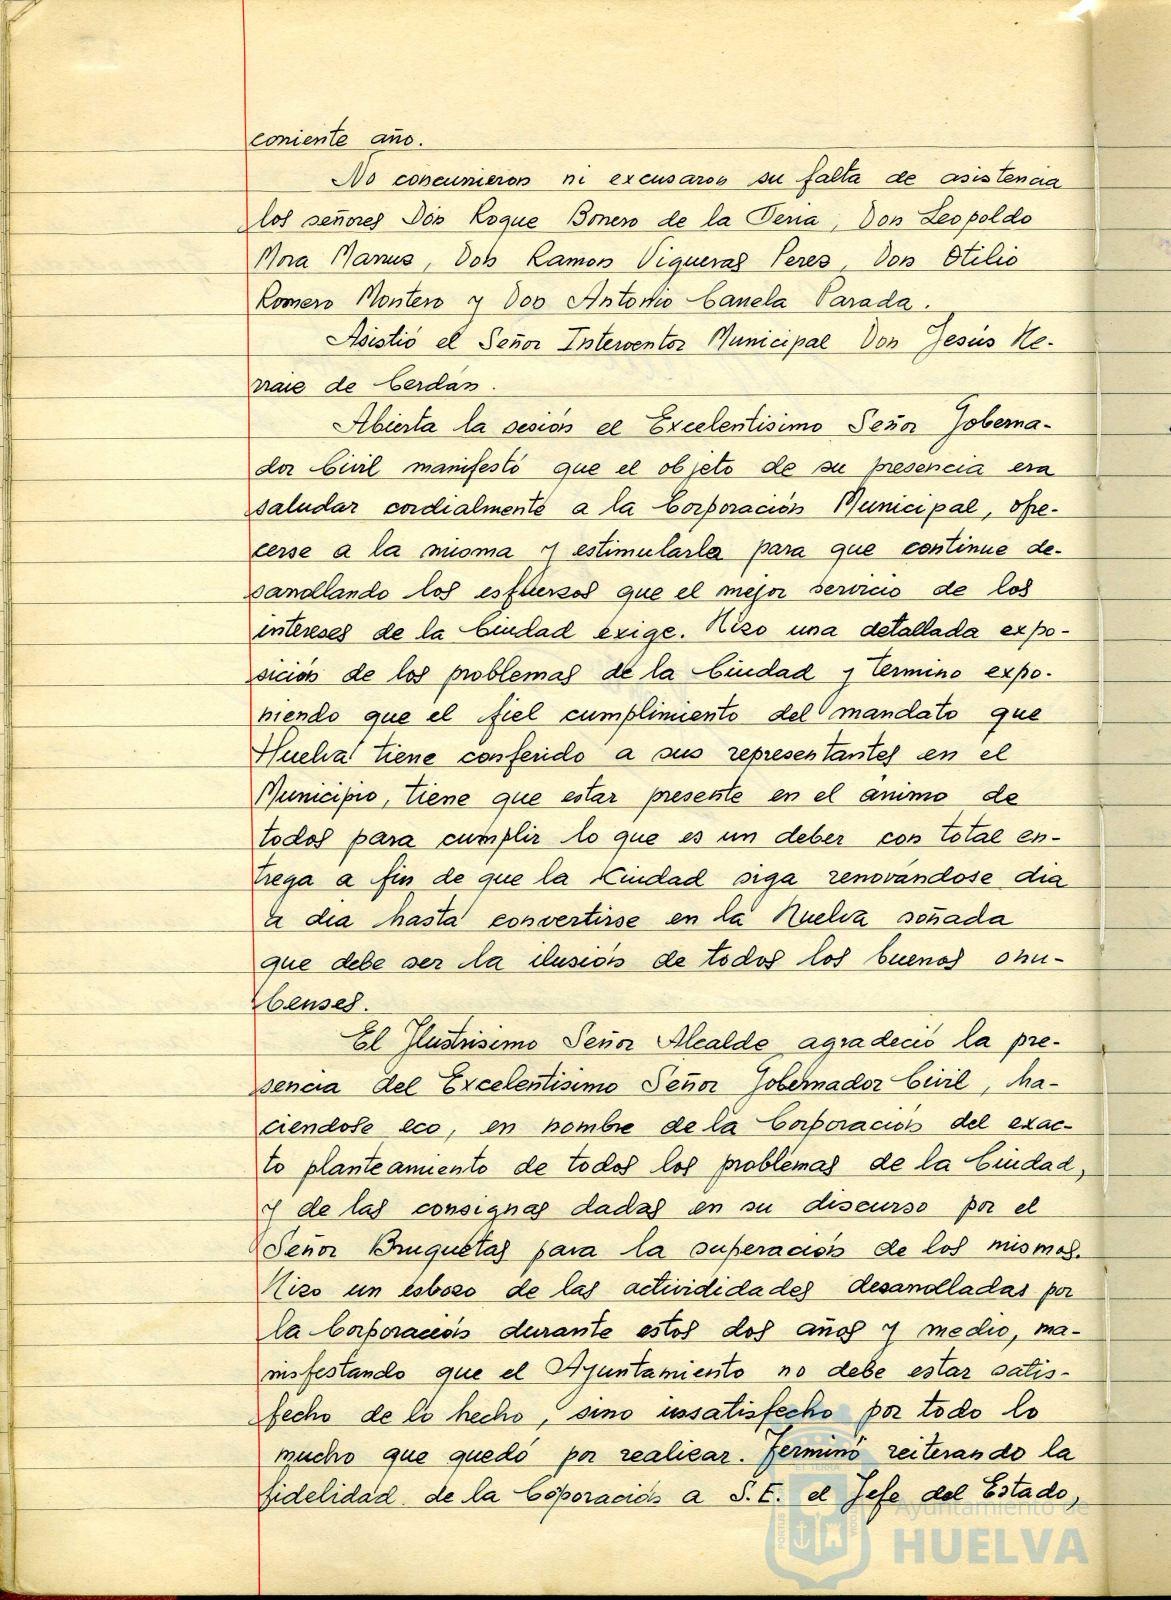 corriente año.
No concurrieron ni excusaron su falta de asistencia
los señores Don Roque Borrero de la Feria, Don Leopoldo
Mora Marrus, Don Ramon Vigueras Peres, Don Otilio
Romero Montero y Don Antonio Canela Parada.
Asistió el Señor Interventor Municipal Don Jesús He-
rraie de Cerdán.
Abierta la sesión el Excelentisimo Señor Goberna-
dor Civil manifestó que el objeto de su presencia era
saludar cordialmente a la Corporación Municipal, ofre-
cerse a la misma y estimularla para que continue de-
sarrollando los esfuerzos que el mejor servicio de los
intereses de la Ciudad exige. Hizo una detallada expo-
sición de los problemas de la Ciudad y termino expo-
niendo que el fiel cumplimiento del mandato que
Huelva tiene conferido a sus representantes en el
Municipio, tiene que estar presente en el animo de
todos para cumplir lo que es un deber con total en-
trega a fin de que la Ciudad siga renovándose dia
a dia hasta convertirse en la Huelva soñada
que debe ser la ilusión de todos los buenos onu-
benses.
El Ilustrisimo Señor Alcalde agradeció la pre-
sencia del Excelentisimo Señor Gobernador Civil, ha-
ciendose eco, en nombre de la Corporación del exac-
to planteamiento de todos los problemas de la Ciudad,
y de las consignas dadas en su discurso por el
Señor Bruquetas para la superación de los mismos.
Hizo un esbozo de las activididades desarrolladas por
la Corporación durante estos dos años y medio, ma-
nisfestando que el Ayuntamiento no debe estar satis-
fecho de lo hecho, sino insatisfecho por todo lo
mucho que quedó por realizar. Terminó reiterando la
fidelidad de la Coporación a S.E. el Jefe del Estado,
Ayuntamiento de
HUELVA